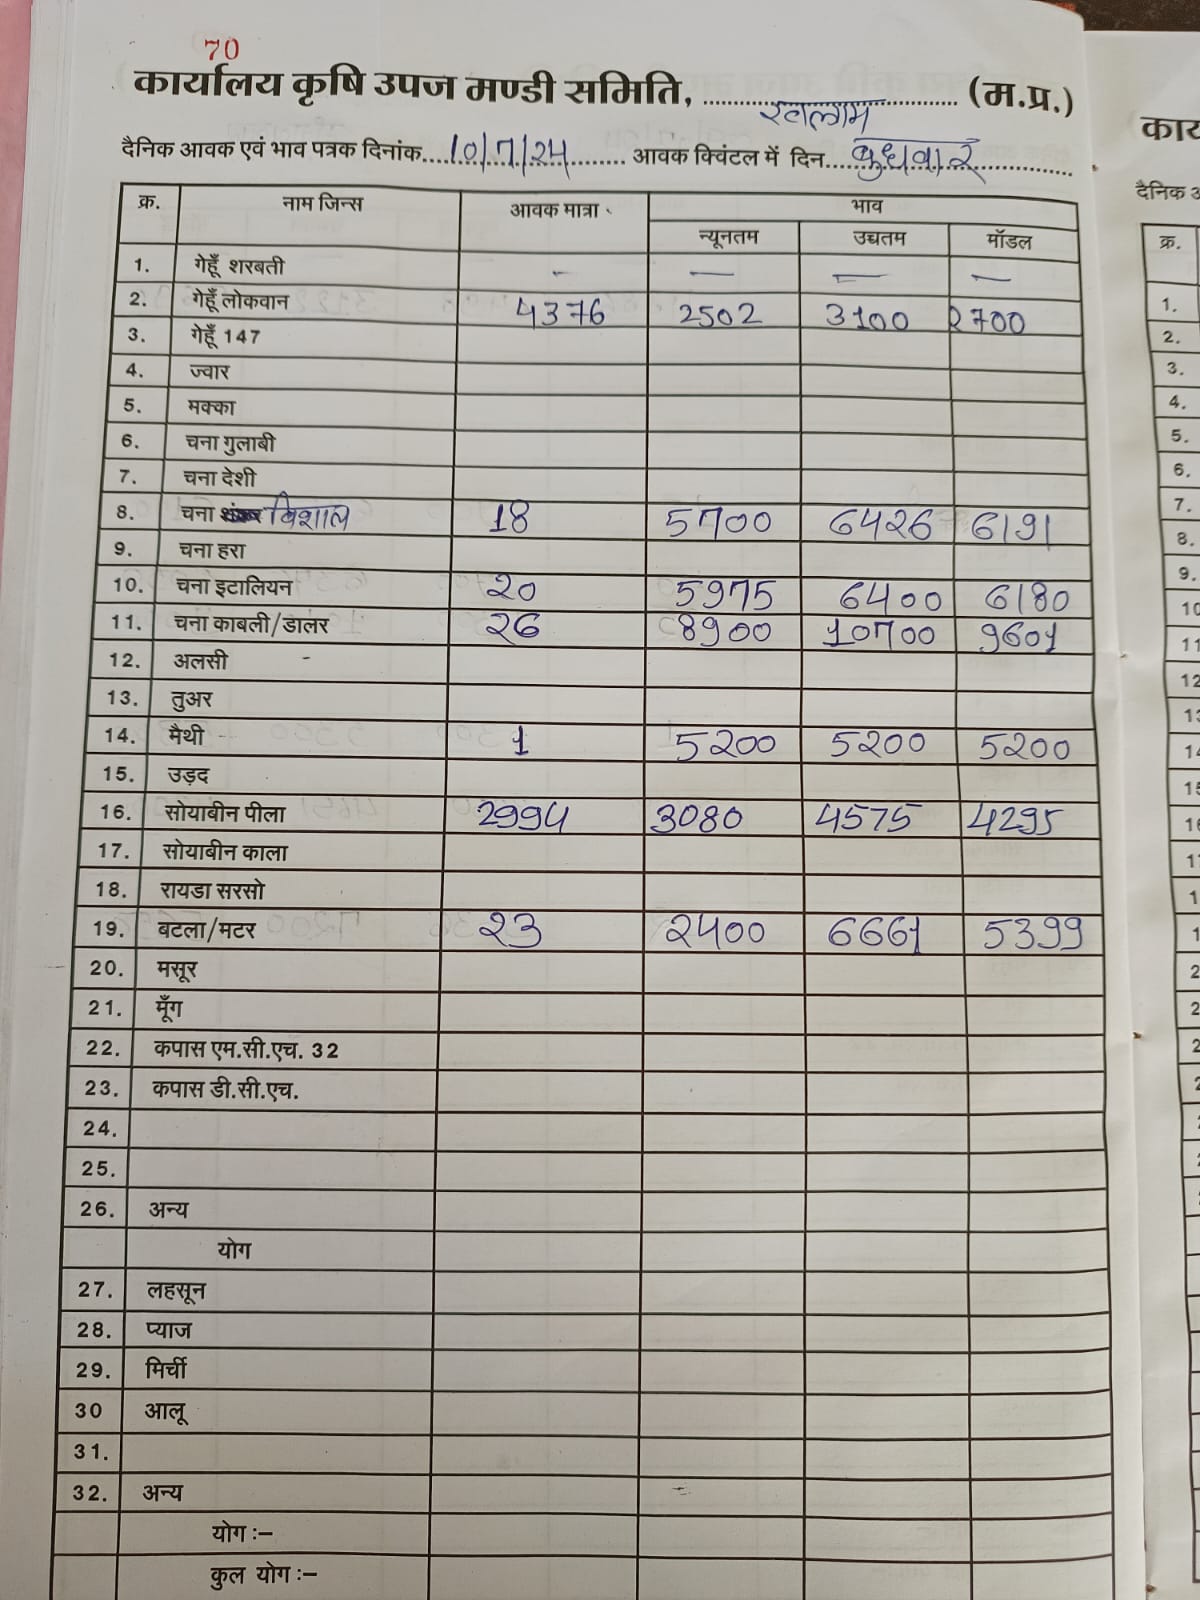 70
कार्यालय कृषि उपज मण्डी समिति, रतलाम (म.प्र.)
दैनिक आवक एवं भाव पत्रक दिनांक 10/7/24 आवक क्विंटल में दिन बुधवार
क्र. नाम जिन्स आवक मात्रा भाव
न्यूनतम उच्चतम मॉडल
1. गेहूँ शरबती - — — —
2. गेहूँ लोकवान 4376 2502 3100 2700
3. गेहूँ 147
4. ज्वार
5. मक्का
6. चना गुलाबी
7. चना देशी
8. चना विशाल 18 5700 6426 6191
9. चना हरा
10. चना इटालियन 20 5975 6400 6180
11. चना काबली/डालर 26 8900 10700 9601
12. अलसी -
13. तुअर
14. मैथी 1 5200 5200 5200
15. उड़द
16. सोयाबीन पीला 2994 3080 4575 4295
17. सोयाबीन काला
18. रायडा सरसो
19. बटला/मटर 23 2400 6661 5399
20. मसूर
21. मूँग
22. कपास एम.सी.एच. 32
23. कपास डी.सी.एच.
24.
25.
26. अन्य
योग
27. लहसून
28. प्याज
29. मिर्ची
30 आलू
31.
32. अन्य
योग :–
कुल योग :–
काय
दैनिक अ
क्र.
1.
2.
3.
4.
5.
6.
7.
8.
9.
10
11
12